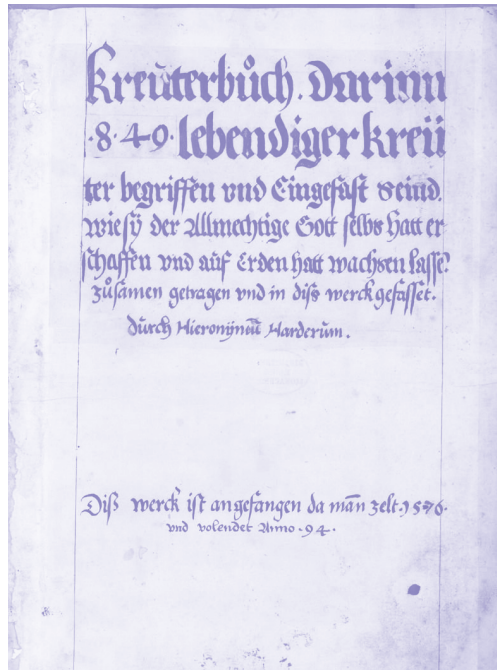 Kreüterbůch. Darinn
·8·49· lebendiger kreü
ter begriffen vnd Eingefast seind.
wie sÿ der Allmechtige Gott selbs Hatt er
schaffen vnd aůf Erden hatt wachsen lasse᷑
zůsamen getragen vnd in diss werck gefasset.
důrch Hieronÿmū Harderům.
Diß werck ist angefangen da mān zelt. 1576·
vnd volendet Anno · 94 ·